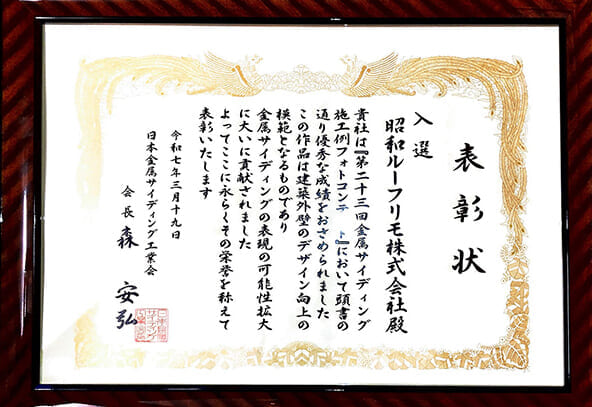 表彰状
入選
昭和ルーフリモ株式会社殿
貴社は『第二十三回金属サイディング
施工例フォトコンテ ト』において頭書の
通り優秀な成績をおさめられました
この作品は建築外壁のデザイン向上の
模範となるものであり
金属サイディングの表現の可能性拡大
に大いに貢献されました
よってここに永らくその栄誉を称えて
表彰いたします
令和七年三月十九日
日本金属サイディング工業会
会長 森 安弘